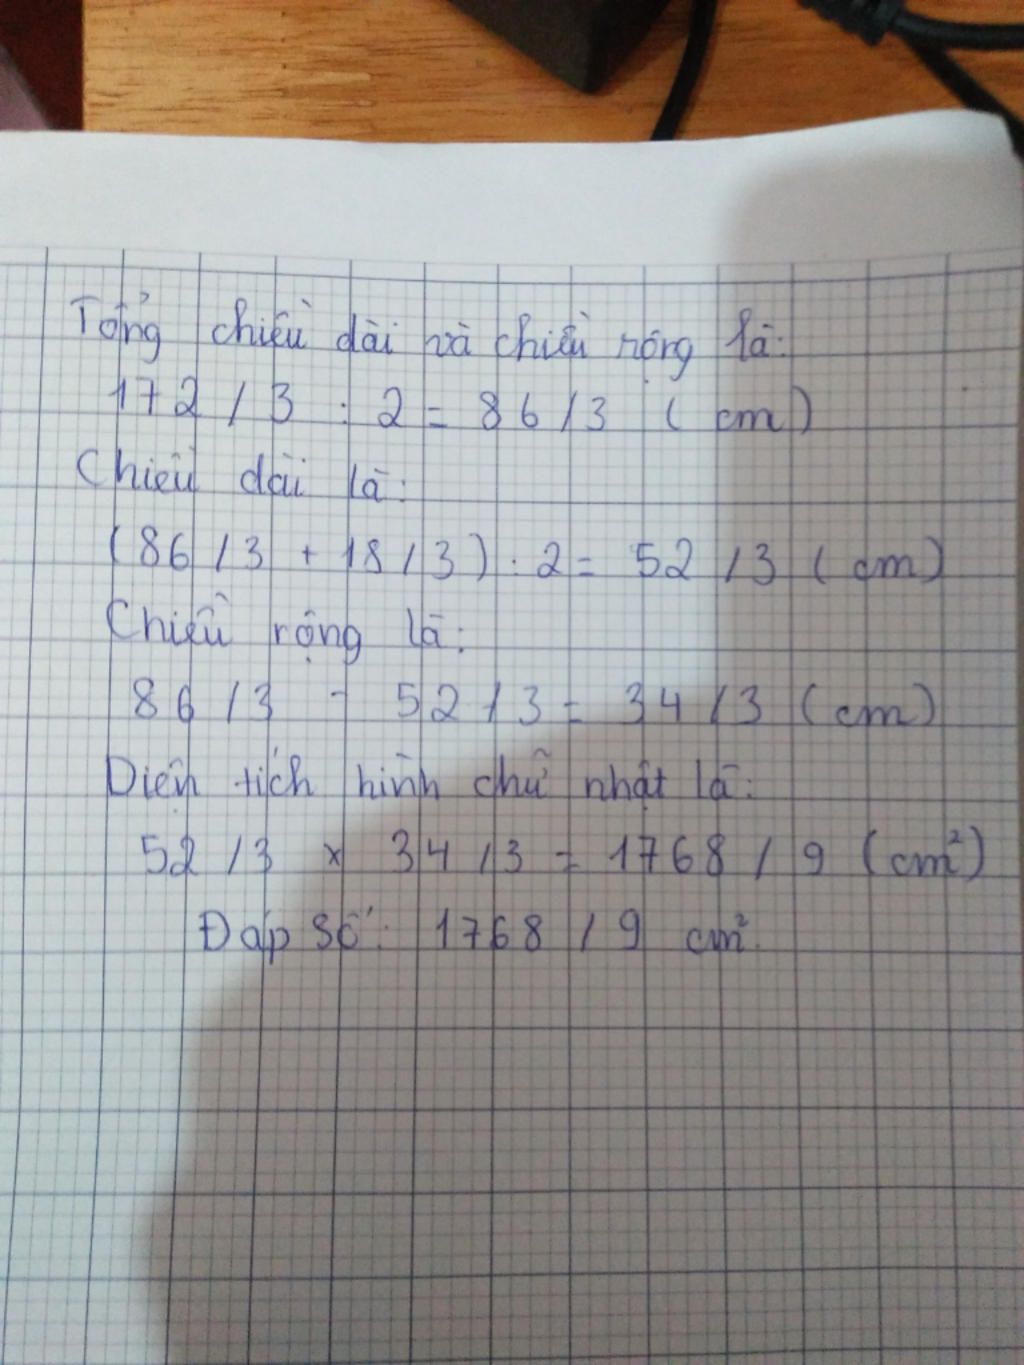 Tổng chiều dài và chiều rộng là:
172 / 3 : 2 = 86 / 3 ( cm )
Chiều dài là:
( 86 / 3 + 18 / 3 ) : 2 = 52 / 3 ( cm )
Chiều rộng là:
86 / 3 - 52 / 3 = 34 / 3 ( cm )
Diện tích hình chữ nhật là:
52 / 3 x 34 / 3 = 1768 / 9 ( cm² )
Đáp số: 1768 / 9 cm².